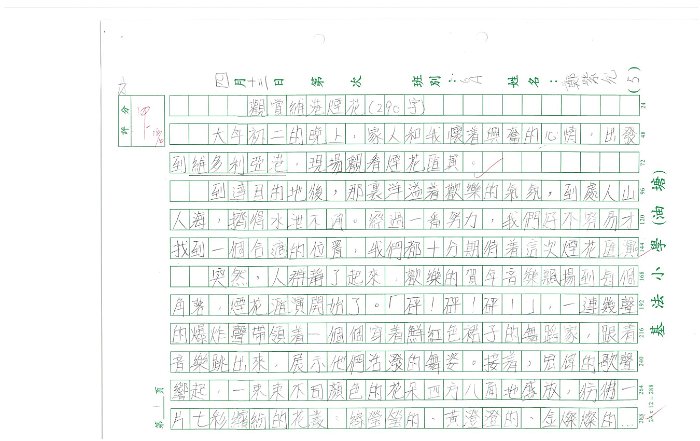 四月十三日 第 次 班別: 五A 姓名: (5)
評分 甲
觀賞維港煙花(290字)
大年初二的晚上，家人和我懷着興奮的心情，出發
到維多利亞港，現場觀看煙花匯演。
到達目的地後，那裏洋溢着歡樂的氣氛，到處人山
人海，擠得水泄不通。經過一番努力，我們好不容易才
找到一個合適的位置，我們都十分期待着這次煙花匯演
突然，人群靜了起來，歡樂的賀年音樂飄揚到每個
角落，煙花匯演開始了。「砰！砰！砰！」，一連幾聲
的爆炸聲帶領着一個個穿着鮮紅色裙子的舞蹈家，跟着
音樂跳出來，展示他們活潑的舞姿。接着，宏偉的歌聲
響起，一朵朵不同顏色的花朵四方八面地盛放，彷彿一
片七彩繽紛的花海：綠瑩瑩的、黃澄澄的、金燦燦的…
第一頁
基法小學(油塘)
24
48
72
96
120
144
168
192
216
240
264
288